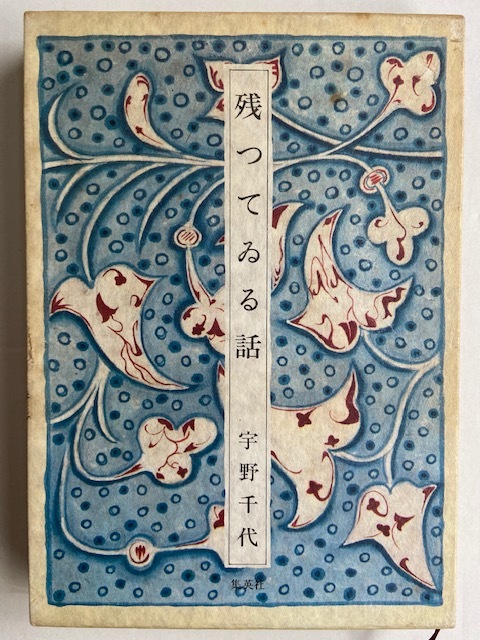 残つてゐる話
宇野千代
集英社